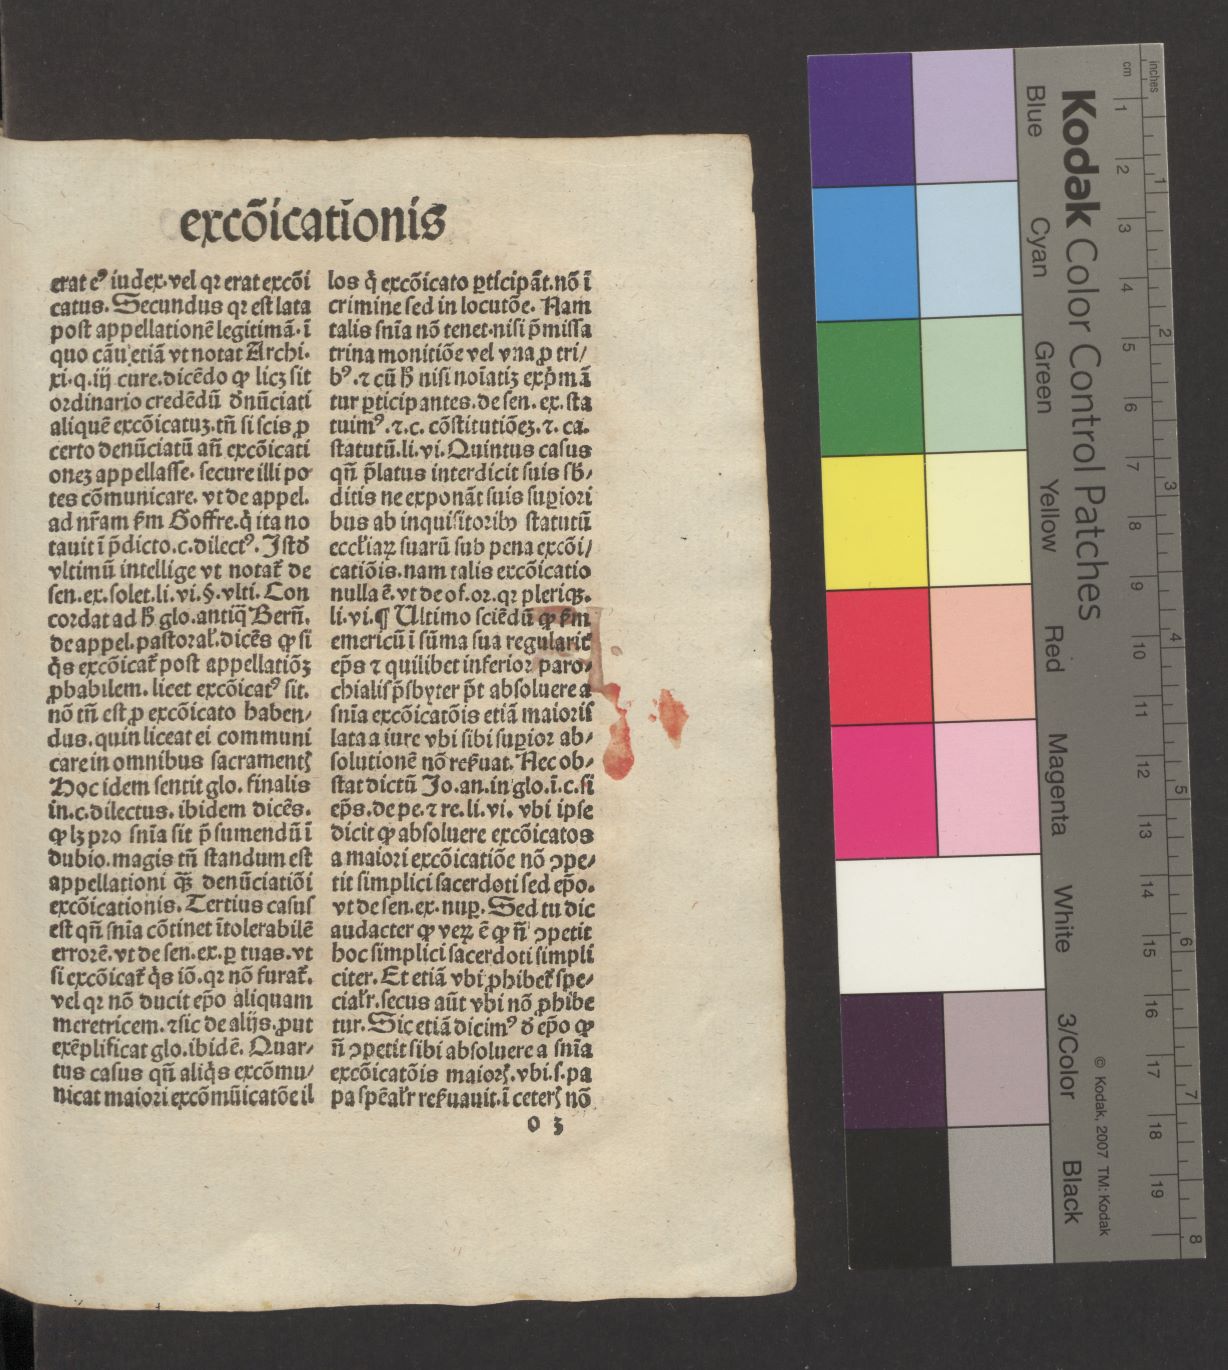 excōicatiōnis
erat eꝰ iudex. vel qꝛ erat excōi
catus. Secundus qꝛ est lata
post appellationē legitimā. ī
quo cāu etiā vt notat Archi.
xi. q. iij cure. dicēdo ꝙ licꝫ sit
ordinario credēdū dn̄ūciati
aliquē excōicatuꝫ. tn̄ si scis ꝓ
certo denūciatū añ excōicati
oneꝫ appellasse. secure illi po
tes cōmunicare. vt de appel.
ad nr̄am ẜm Goffre. q̇ ita no
tauit ī p̄dicto. c. dilectꝰ. Istd̄
vltimū intellige vt notat̄ de
sen. ex. solet. li. vi. §. vlti. Con
cordat ad h̄ glo. antiq̄ Berñ.
de appel. pastoral̄. dicēs ꝙ si
q̇s excōicat̄ post appellatiōꝫ
ꝓbabilem. licet excōicatꝰ sit.
nō tn̄ est ꝓ excōicato haben⸗
dus. quin liceat ei communi
care in omnibus sacramentꝭ
Hoc idem sentit glo. finalis
in. c. dilectus. ibidem dicēs.
ꝙ lꝫ pro sn̄ia sit p̄sumendū ī
dubio. magis tn̄ standum est
appellationi q̄ꝫ denūciatiōi
excōicationis. Tertius casus
est qn̄ sn̄ia cōtinet ītolerabilē
errorē. vt de sen. ex. ꝑ tuas. vt
si excōicat̄ q̇s iō. qꝛ nō furat̄.
vel qꝛ nō ducit ep̄o aliquam
meretricem. ⁊ sic de alijs. ꝓut
exēplificat glo. ibidē. Quar⸗
tus casus qn̄ aliq̇s excōmu⸗
nicat maiori excōmūicatōe il
los q̇ excōicato ꝑticipāt. nō ī
crimine sed in locutōe. Nam
talis sn̄ia nō tenet. nisi p̄missa
trina monitiōe vel vna ꝓ tri⸗
bꝰ. ⁊ cū h̄ nisi noīatiꝫ exp̄mā
tur ꝑticipantes. de sen. ex. sta
tuimꝰ. ⁊. c. cōstitutiōeꝫ. ⁊. ca.
statutū. li. vi. Quintus casus
qn̄ p̄latus interdicit suis sb̄⸗
ditis ne exponāt suis suꝑiori
bus ab inquisitoribꝰ statutū
eccl̄iaꝝ suarū sub pena excōi⸗
catiōis. nam talis excōicatio
nulla ē. vt de of. or. qꝛ pleriqꝫ.
li. vi. ¶ Ultimo sciēdū ꝙ ẜm
emericū ī sūma sua regularit̄
ep̄s ⁊ quilibet inferior paro⸗
chialis p̄sbyter p̄t absoluere a
sn̄ia excōicatōis etiā maioris
lata a iure vbi sibi suꝑior ab⸗
solutionē nō reẜuat. Nec ob⸗
stat dictū Jo. an. in glo. ī. c. si
ep̄s. de pe. ⁊ re. li. vi. vbi ipse
dicit ꝙ absoluere excōicatos
a maiori excōicatiōe nō ꝯpe⸗
tit simplici sacerdoti sed ep̄o.
vt de sen. ex. nuꝑ. Sed tu dic
audacter ꝙ veꝝ ē ꝙ n̄ ꝯpetit
hoc simplici sacerdoti simpli
citer. Et etiā vbi ꝓhibet̄ spe⸗
cial̄r. secus aūt vbi nō ꝓhibe
tur. Sic etiā dicimꝰ d̄ ep̄o ꝙ
n̄ ꝯpetit sibi absoluere a sn̄ia
excōicatōis maiorꝭ. vbi. s. pa
pa spēal̄r reẜuauit. ī ceterꝭ nō
o 3
Kodak Color Control Patches
Blue
Cyan
Green
Yellow
Red
Magenta
White
3/Color
Black
© Kodak, 2007 TM: Kodak
cm 1 2 3 4 5 6 7 8 9 10 11 12 13 14 15 16 17 18 19
inches 1 2 3 4 5 6 7 8